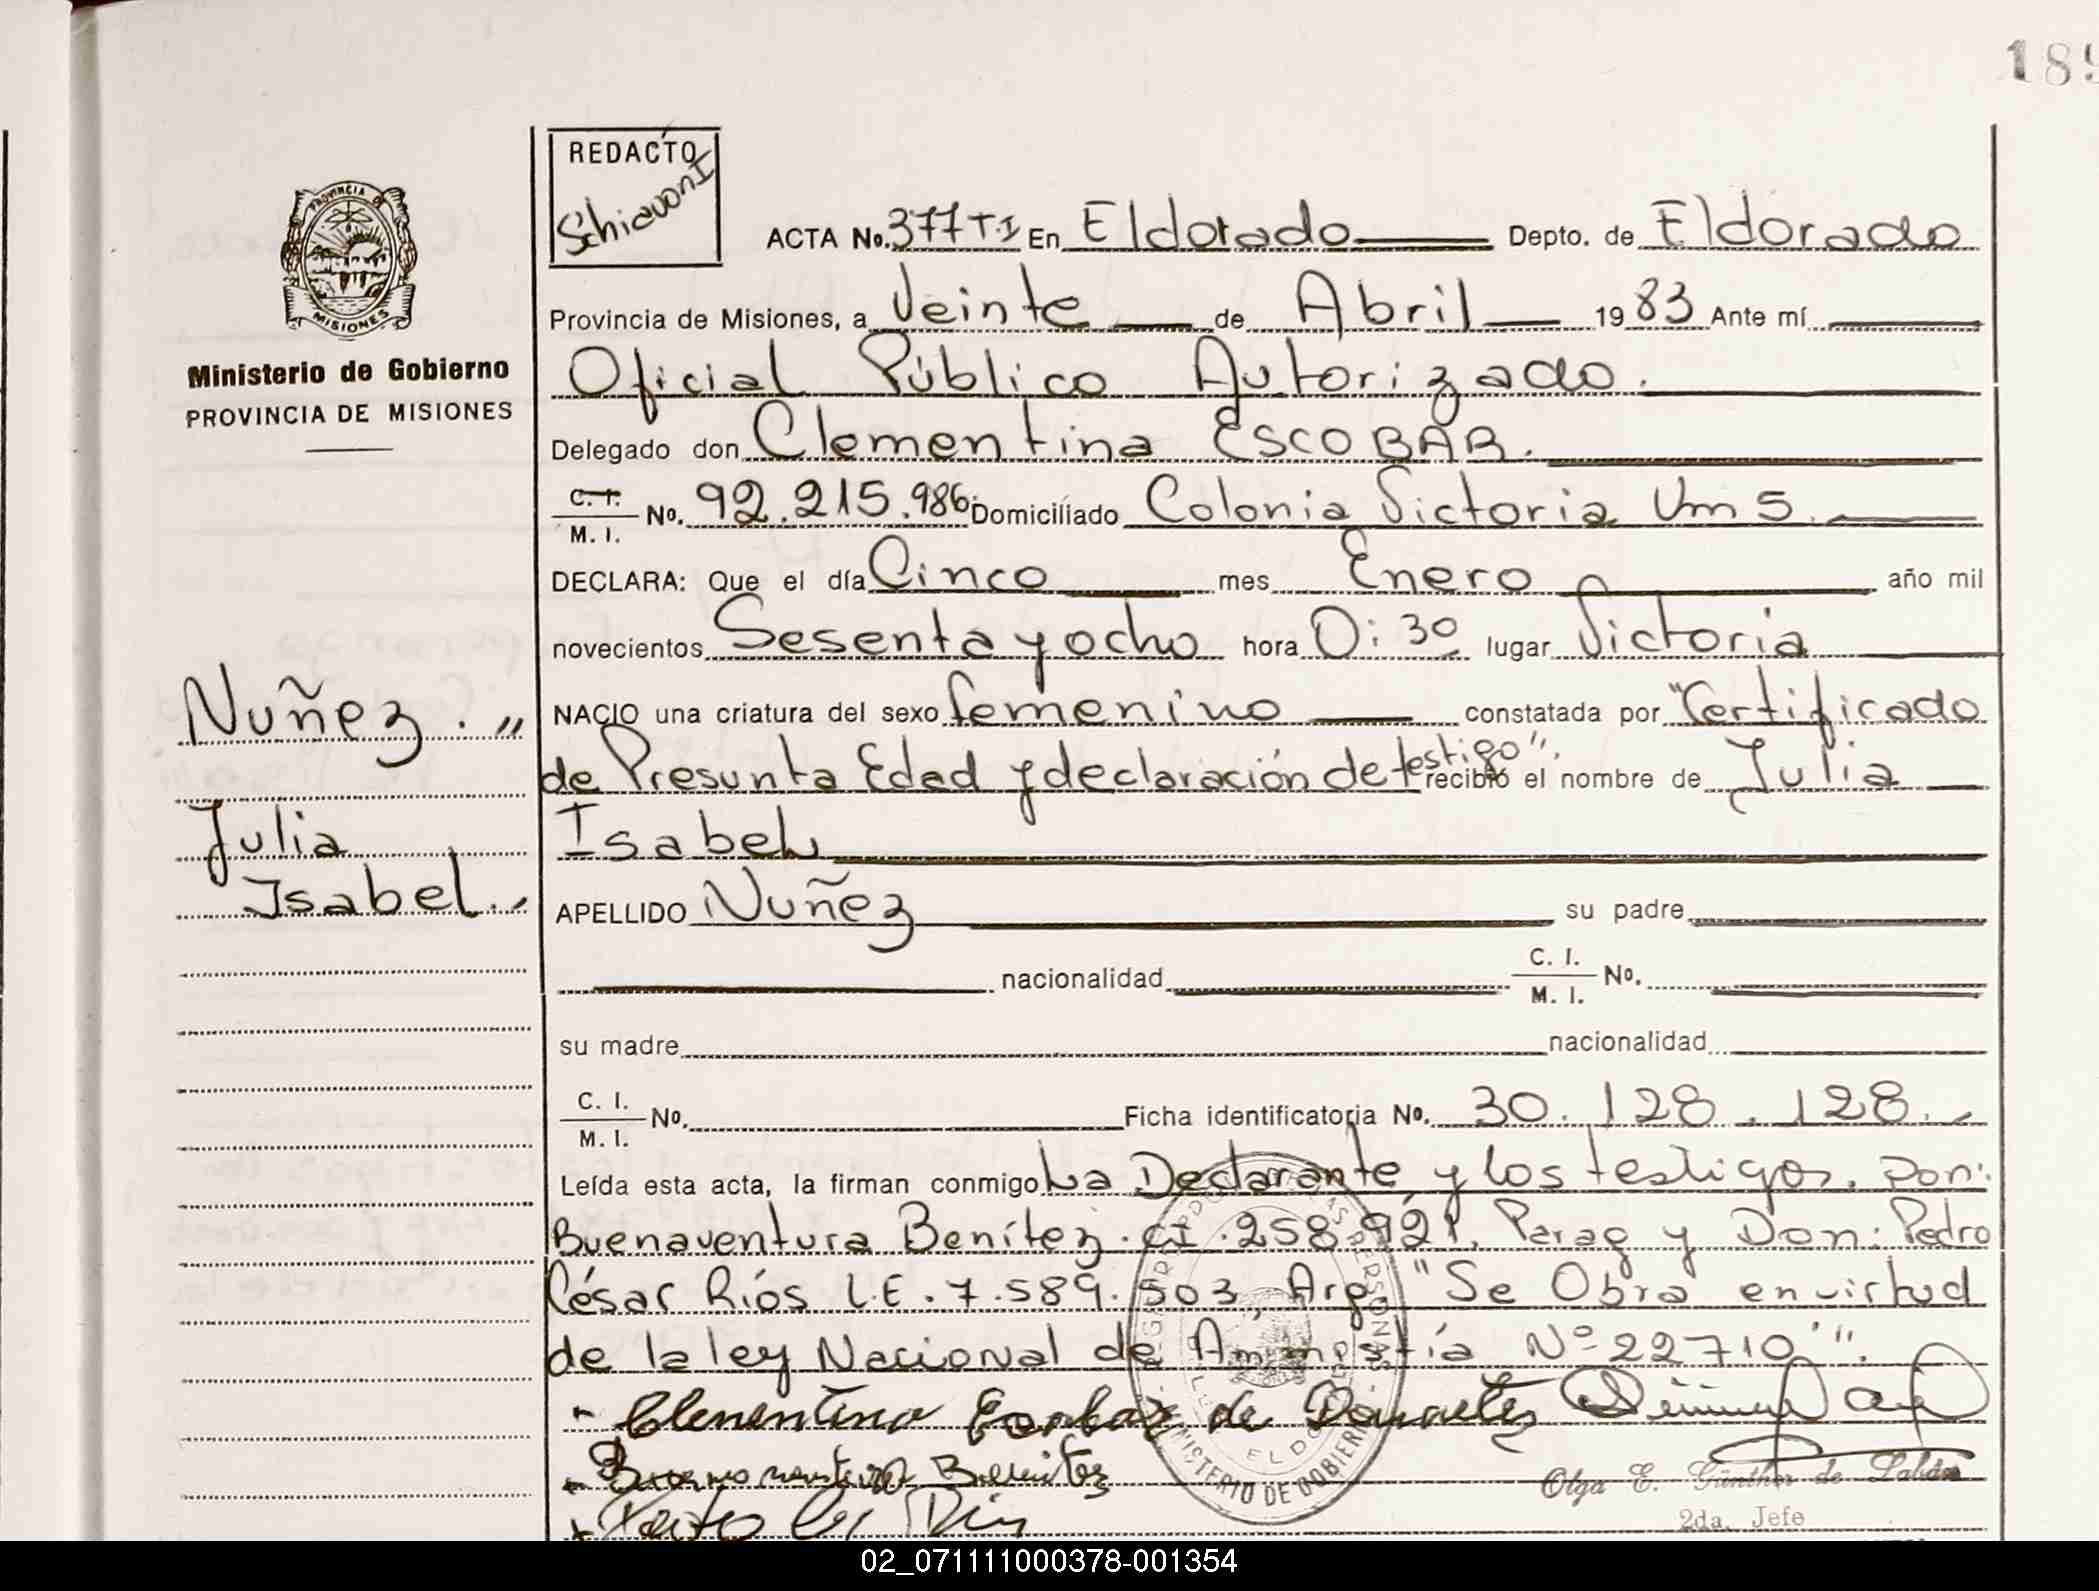 189
REDACTO
Schiavoni
PROVINCIA DE
MISIONES
Ministerio de Gobierno
PROVINCIA DE MISIONES
ACTA No. 377 T-I En Eldorado Depto. de Eldorado
Provincia de Misiones, a Veinte de Abril 1983 Ante mí
Oficial Público Autorizado.
Delegado don Clementina ESCOBAR.
C. I. M. I. No. 92.215.986 Domiciliado Colonia Victoria Km 5.
DECLARA: Que el día Cinco mes Enero año mil
novecientos Sesenta y ocho hora 0:30 lugar Victoria
NACIO una criatura del sexo femenino constatada por "Certificado
de Presunta Edad y declaración de testigo". recibió el nombre de Julia
Isabel
APELLIDO Nuñez su padre
nacionalidad C. I. M. I. No.
su madre nacionalidad
C. I. M. I. No. Ficha identificatoria No. 30.128.128.
Leída esta acta, la firman conmigo La Declarante y los testigos. Don:
Buenaventura Benítez. CI. 258.921, Parag y Don: Pedro
César Ríos L.E. 7.589.503, Arg. "Se Obra en virtud
de la ley Nacional de Amnistía Nº 22710".
Nuñez. "
Julia
Isabel.
Clementina Escobar de
Buenaventura Benitez
MINISTERIO DE GOBIERNO
Olga E. Günther de
2da. Jefe
02_071111000378-001354